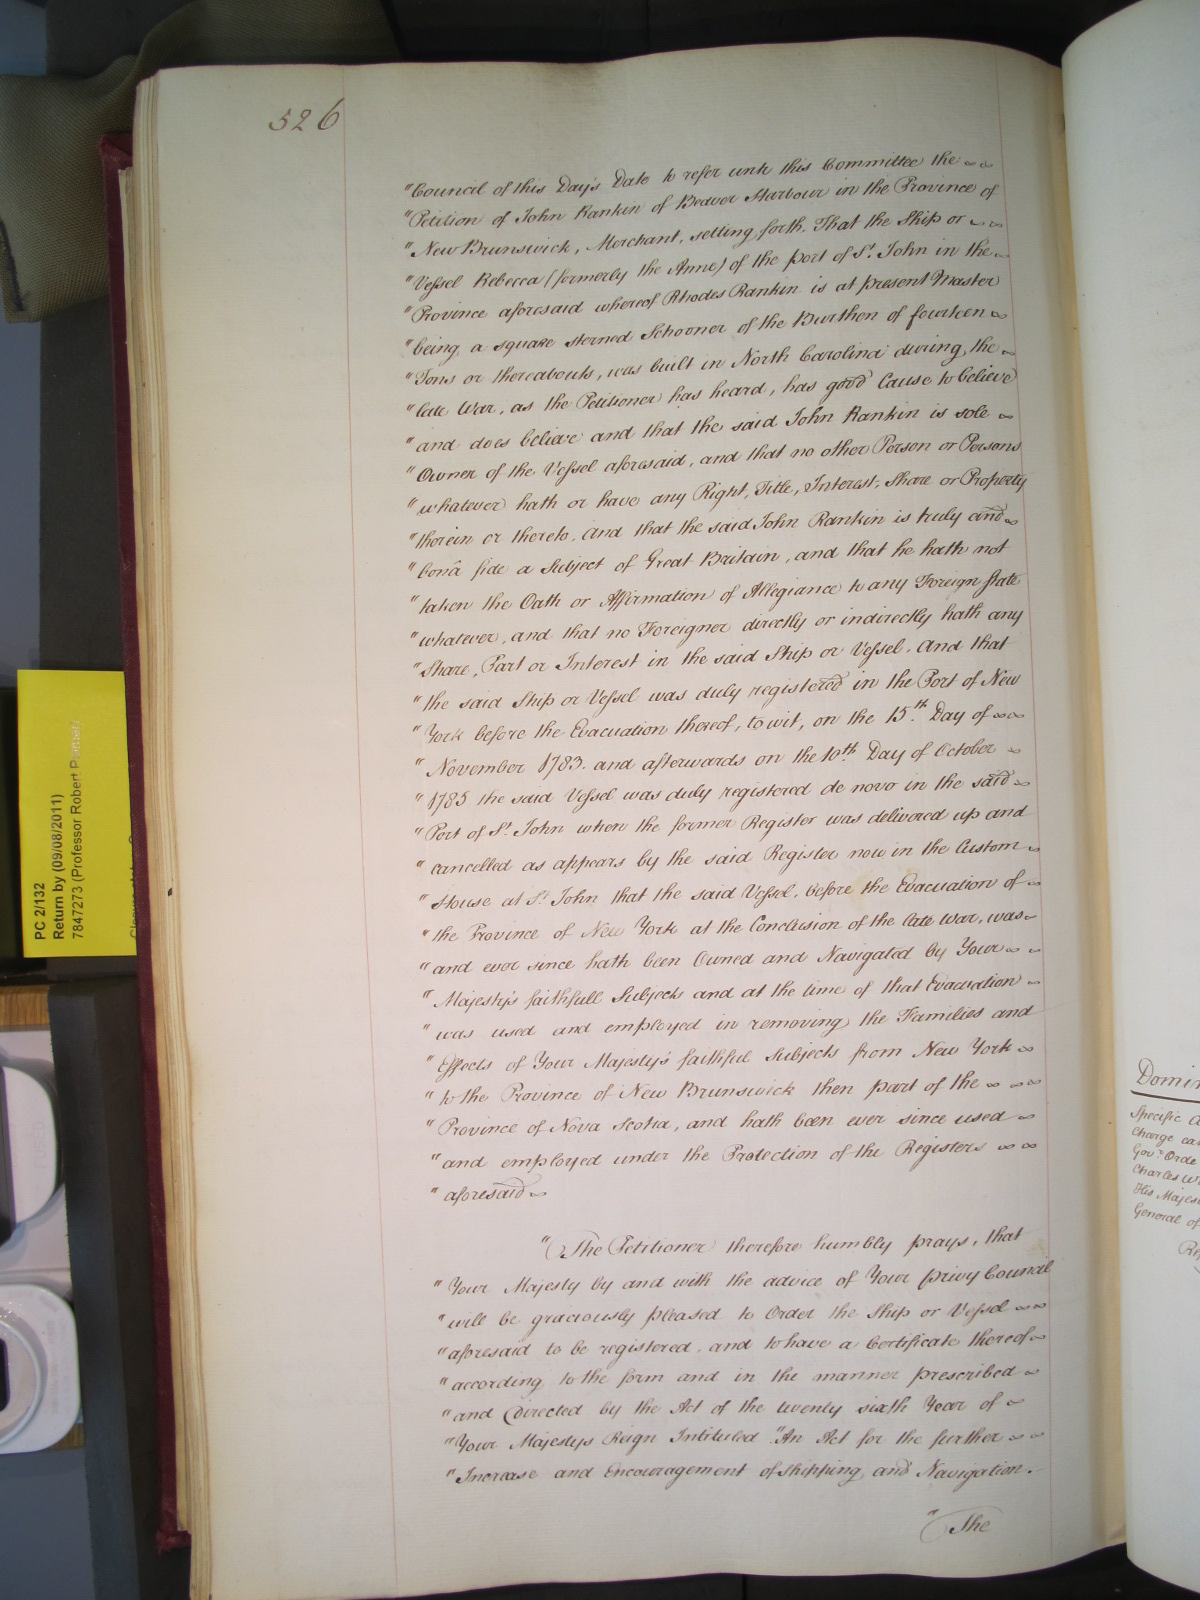 526
"Council of this Day's Date to refer unto this Committee the
"Petition of John Rankin of Beaver Harbour in the Province of
"New Brunswick, Merchant, setting forth. That the Ship or
"Vessel Rebecca (formerly the Anne) of the port of St. John in the
"Province aforesaid whereof Rhodes Rankin is at present Master
"being a square sterned Schooner of the Burthen of fourteen
"Tons or thereabouts, was built in North Carolina during the
"late War, as the Petitioner has heard, has good Cause to believe
"and does believe and that the said John Rankin is sole
"Owner of the Vessel aforesaid, and that no other Person or Persons
"whatever hath or have any Right, Title, Interest, Share or Property
"therein or thereto. And that the said John Rankin is truly and
"bonâ fide a Subject of Great Britain, and that he hath not
"taken the Oath or Affirmation of Allegiance to any Foreign State
"whatever, and that no Foreigner directly or indirectly hath any
"Share, Part or Interest in the said Ship or Vessel. And that
"the said Ship or Vessel was duly registered in the Port of New
"York before the Evacuation thereof, to wit, on the 15th. Day of
"November 1783. and afterwards on the 10th. Day of October
"1785 the said Vessel was duly registered de novo in the said
"Port of St. John when the former Register was delivered up and
"cancelled as appears by the said Register now in the Custom
"House at St. John that the said Vessel, before the Evacuation of
"the Province of New York at the Conclusion of the late War, was
"and ever since hath been Owned and Navigated by Your
"Majesty's faithfull Subjects and at the time of that Evacuation
"was used and employed in removing the Families and
"Effects of Your Majesty's faithful Subjects from New York
"to the Province of New Brunswick then part of the
"Province of Nova Scotia, and hath been ever since used
"and employed under the Protection of the Registers
"aforesaid
"The Petitioner therefore humbly prays, that
"Your Majesty by and with the advice of Your privy Council
"will be graciously pleased to Order the Ship or Vessel
"aforesaid to be registered, and to have a Certificate thereof
"according to the form and in the manner prescribed
"and directed by the Act of the twenty sixth Year of
"Your Majestys Reign Intituled "An Act for the further
"Increase and Encouragement of Shipping and Navigation.
"The
PC 2/132
Return by (09/08/2011)
7847273 (Professor Robert
Specific
Charge
Govr. Orde
Charles
His Majes
General of